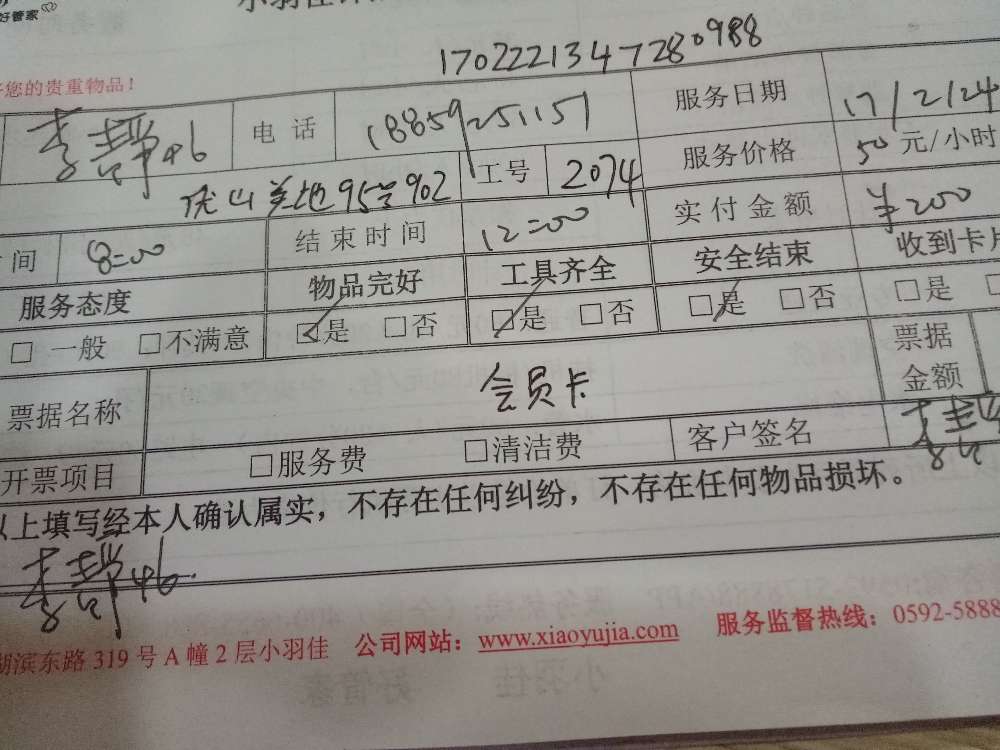 好管家
小羽佳
17022213472 80988
您的贵重物品!
李静46 电话 18859251151 服务日期 17/2/24
虎山美地95号902 工号 2074 服务价格 50元/小时
间 8:00 结束时间 12:00 实付金额 ¥200
服务态度 物品完好 工具齐全 安全结束 收到卡片
□ 一般 □不满意 ☑是 □否 ☑是 □否 ☑是 □否 □是
票据名称 会员卡 票据金额
开票项目 □服务费 □清洁费 客户签名 李静
以上填写经本人确认属实,不存在任何纠纷,不存在任何物品损坏。
李静46
湖滨东路319号A幢2层小羽佳 公司网站:www.xiaoyujia.com 服务监督热线:0592-5888